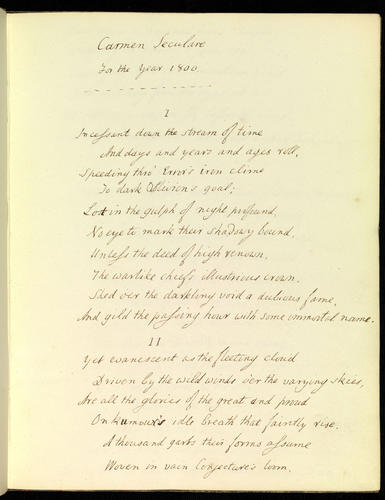 Carmen Seculare
For the Year 1800.
I
Incessant down the stream of time
And days and years and ages roll,
Speeding thro' Error's iron clime
To dark Oblivion's goal;
Lost in the gulph of night profound,
No eye to mark their shadowy bound,
Unless the deed of high renown,
The warlike chief's illustrious crown,
Shed o'er the darkling void a dubious fame,
And gild the passing hour with some immortal name.
II
Yet evanescent as the fleeting cloud
Driven by the wild winds o'er the varying skies,
Are all the glories of the great and proud
On Rumour's idle breath that faintly rise.
A thousand garbs their forms assume
Woven in vain Conjecture's loom.